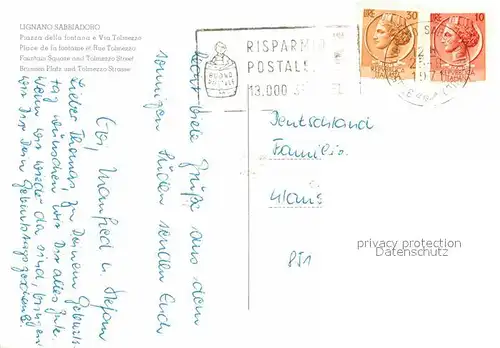 LIGNANO SABBIADORO
Piazza della fontana e Via Tolmezzo
Place de la fontaine et Rue Tolmezzo
Fountain Square and Tolmezzo Street
Brunnen-Platz und Tolmezzo-Strasse
RISPARMIO
POSTALE
13.000
BUONO
POSTALE
LIRE 30
LIRE 10
Deutschland
Familie
Klaus
851
privacy protection
Datenschutz
viele Grüße aus dem
sonnigen Süden senden Euch
Manfred u. Stefan
Lieber Thomas, zu Deinem Geburts-
tag wünschen wir Dir alles Gute.
Wenn wir wieder da sind, bringen
wir Dir Dein Geburtstagsgeschenk!